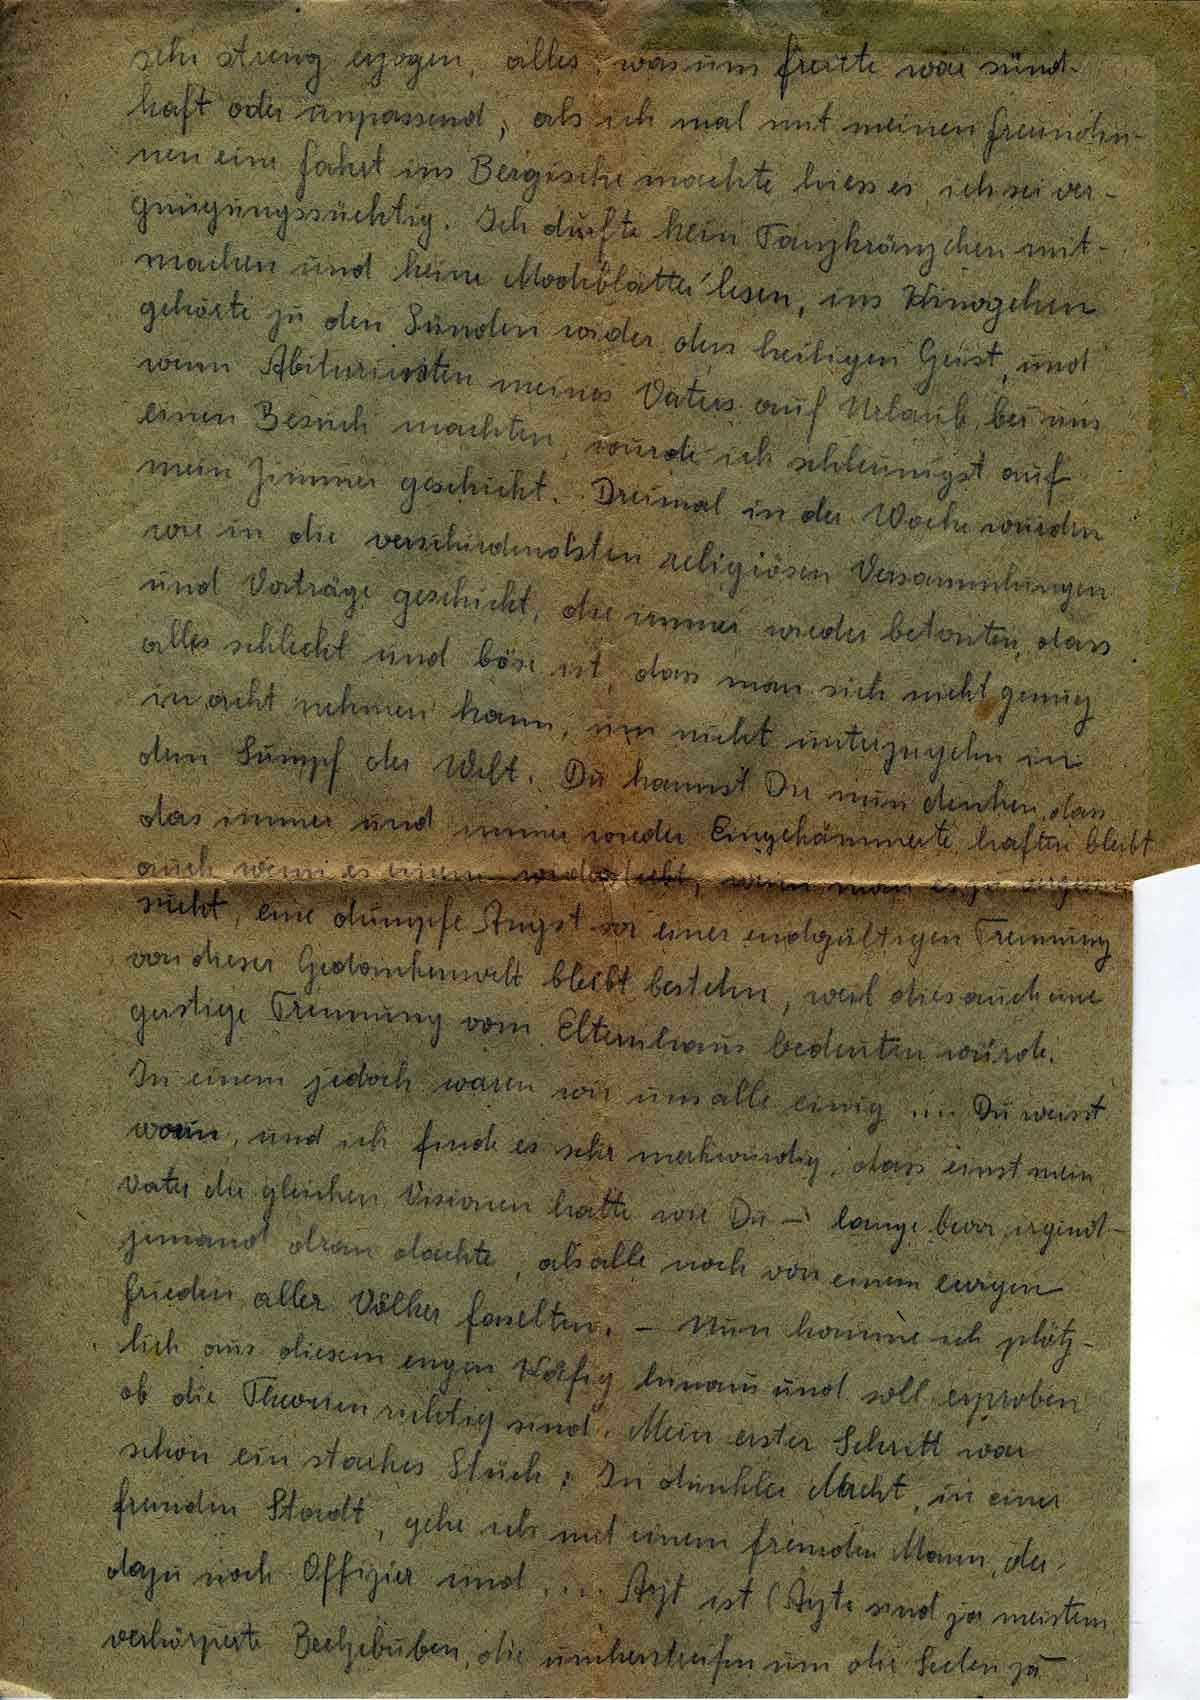 sehr streng erzogen, alles, was uns freute war sünd-
haft oder unpassend, als ich mal mit meinen Freundin-
nen eine Fahrt ins Bergische machte hiess es, ich sei ver-
gnügungssüchtig. Ich durfte kein Tanzkränzchen mit-
machen und keine Modeblätter lesen, ins Kinogehen
gehörte zu den Sünden wider den heiligen Geist, und
wenn Abiturienten meines Vaters auf Urlaub bei uns
einen Besuch machten, wurde ich schleunigst auf
mein Zimmer geschickt. Dreimal in der Woche wurden
wir in die verschiedensten religiösen Versammlungen
und Vorträge geschickt, die immer wieder betonten, dass
alles schlecht und böse ist, dass man sich nicht genug
in acht nehmen kann, um nicht unterzugehn in
dem Sumpf der Welt. Du kannst Dir nun denken, dass
das immer und immer wieder Eingehämmerte haften bleibt
auch wenn es einem widerstrebt, wenn man es zu
sucht, eine dumpfe Angst vor einer endgültigen Trennung
von dieser Gedankenwelt bleibt bestehn, weil dies auch eine
geistige Trennung vom Elternhaus bedeuten würde.
In einem jedoch waren wir uns alle einig ... Du weisst
worin, und ich finde es sehr merkwürdig, dass einst mein
Vater die gleichen Visionen hatte wie Du – lange bevor irgend-
jemand dran dachte, als alle noch von einem ewigen
Frieden aller Völker faselten. – Nun komme ich plötz-
lich aus diesem engen Käfig hinaus und soll erproben
ob die Theorien richtig sind. Mein erster Schritt war
schon ein starkes Stück: In dunkler Nacht, in einer
fremden Stadt, gehe ich mit einem fremden Mann, der
dazu noch Offizier und ... Arzt ist (Ärzte sind ja meistens
verkörperte Beelzebuben, die umherstreifen um die Seelen zu